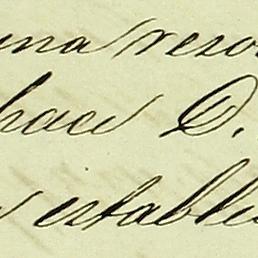 una reso
hace D.
establec